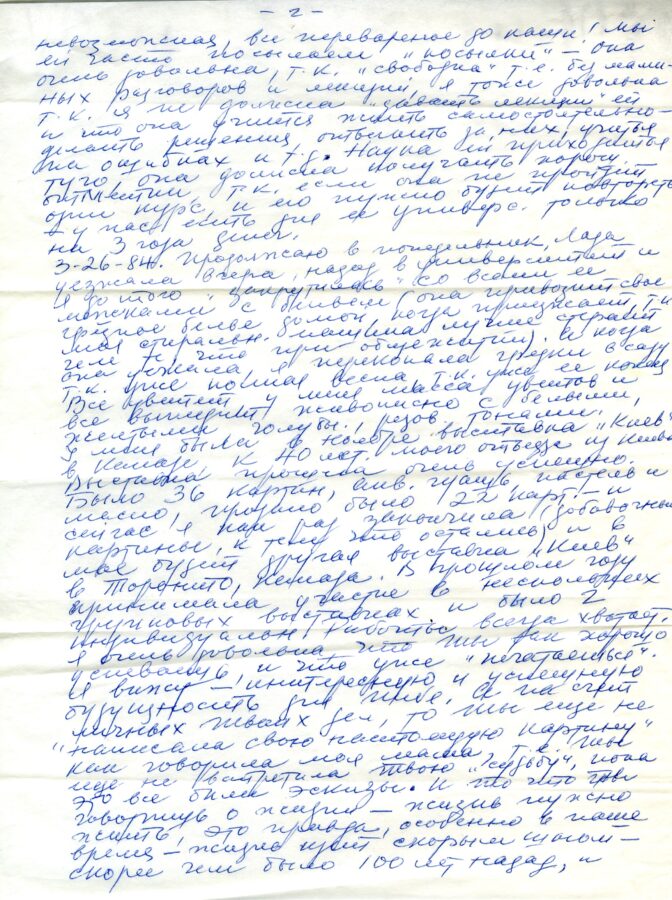 - 2 -
невозможная, все переварено до каши! Мы
ей часто посылаем "посылки" – она
очень довольна, т.к. "свободна" т.е. без мами-
ных разговоров и лекций, я тоже довольна
т.к. я не должна "давать лекции" ей
и что она учится жить самостоятельно –
делать решения отвечать за них, учиться
на ошибках и т.д. Наука ей приходится
туго, она должна получать хорош.
отметки, т.к. если она не пройдет
один курс, и его нужно будет повторять
– у нас есть для ее универс. только
на 3 года денег.
3-26-84. Продолжаю в понедельник, Лада
уезжала вчера, назад в университет и
я до того "закрутилась" со всеми ее
мелочами с бельем (она привозит свое
грязное белье домой когда приезжает т.к.
моя стиральн. машина лучше стирает
чем те что при общежитии). И когда
она уезжала, я перекопала грядки в саду
т.к. уже полная весна т.к. уже ее конец
Все цветет у меня масса цветов и
все выглядит живописно с белыми,
желтыми, голубы., розов. тонами.
У меня была в ноябре выставка "Киев"
в Канаде, к 40 лет. моего отъезда из Киева
Выставка прошла очень успешно.
Было 36 картин, акв. гуашь пастель и
масло, продано было 22 карт. – и
сейчас я как раз закончила (добавочные
картины, к тем что остались) и в
мае будет другая выставка "Киев"
в Торонто, Канада. В прошлом году
принимала участие в нескольких
групповых выставках и было 2
индивидуальн. Работы всегда хватает.
Я очень довольна что ты так хорошо
успеваешь, и что уже "печатаешься".
Я вижу – интересную и успешную
будущность для тебя. А на счет
личных твоих дел, то ты еще не
"написала свою настоящую картину"
как говорила моя мама, т.е. ты
еще не встретила твою "судьбу", пока
это все были эскизы. И то что ты
говоришь о жизни – жизнь нужно
жить, это правда, особенно в наше
время – жизнь идет скорым шагом –
скорее чем было 100 лет назад, и